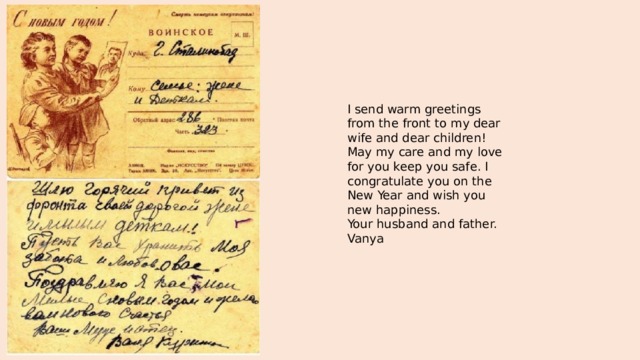 Смерть немецким оккупантам!
С новым годом!
ВОИНСКОЕ
Куда: г. Сталинабад
Кому Семье: жене
и Деткам.
Обратный адрес 286 Полевая почта
Часть 323
Шлю горячий привет из
фронта своей дорогой жене
и милым деткам!
Пусть Вас хранить Моя
забота и Любов о вас.
Поздравляю я Вас Мои
Милые с новым годом и желаю
вам нового Счастья
Ваш Муж и отец.
Ваня
I send warm greetings
from the front to my dear
wife and dear children!
May my care and my love
for you keep you safe. I
congratulate you on the
New Year and wish you
new happiness.
Your husband and father.
Vanya